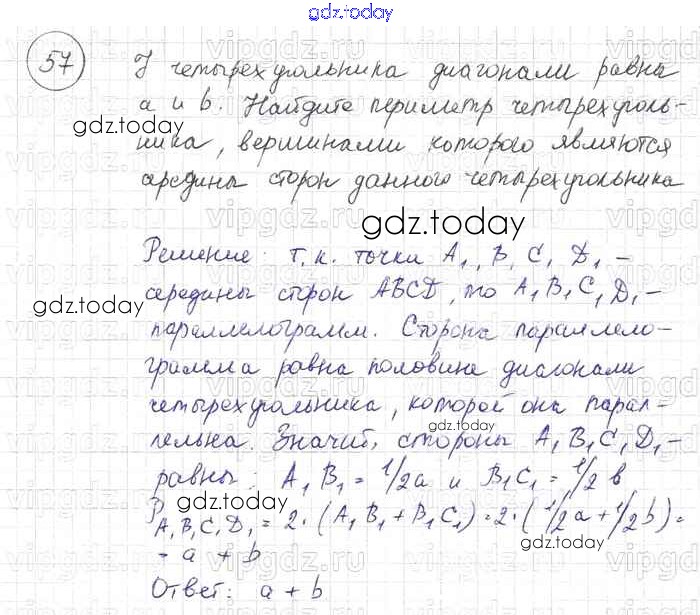 gdz.today
57 У четырехугольника диагонали равна
а и b. Найдите периметр четырехуголь-
gdz.today
ника, вершинами которого являются
середины сторон данного четырехугольника
gdz.today
Решение: т.к. точки A₁, B, C, D₁ -
gdz.today
середины сторон ABCD, то A₁B₁C₁D₁ -
параллелограмм. Сторона параллело-
грамма равна половине диагонали
четырехугольника, которой она парал-
gdz.today
лельна. Значит, стороны A₁B₁C₁D₁ -
равны: A₁B₁ = 1/2a и B₁C₁ = 1/2 b
gdz.today
P A₁B₁C₁D₁ = 2·(A₁B₁+B₁C₁)=2·(1/2a+1/2b)=
gdz.today
= a + b
Ответ: a + b